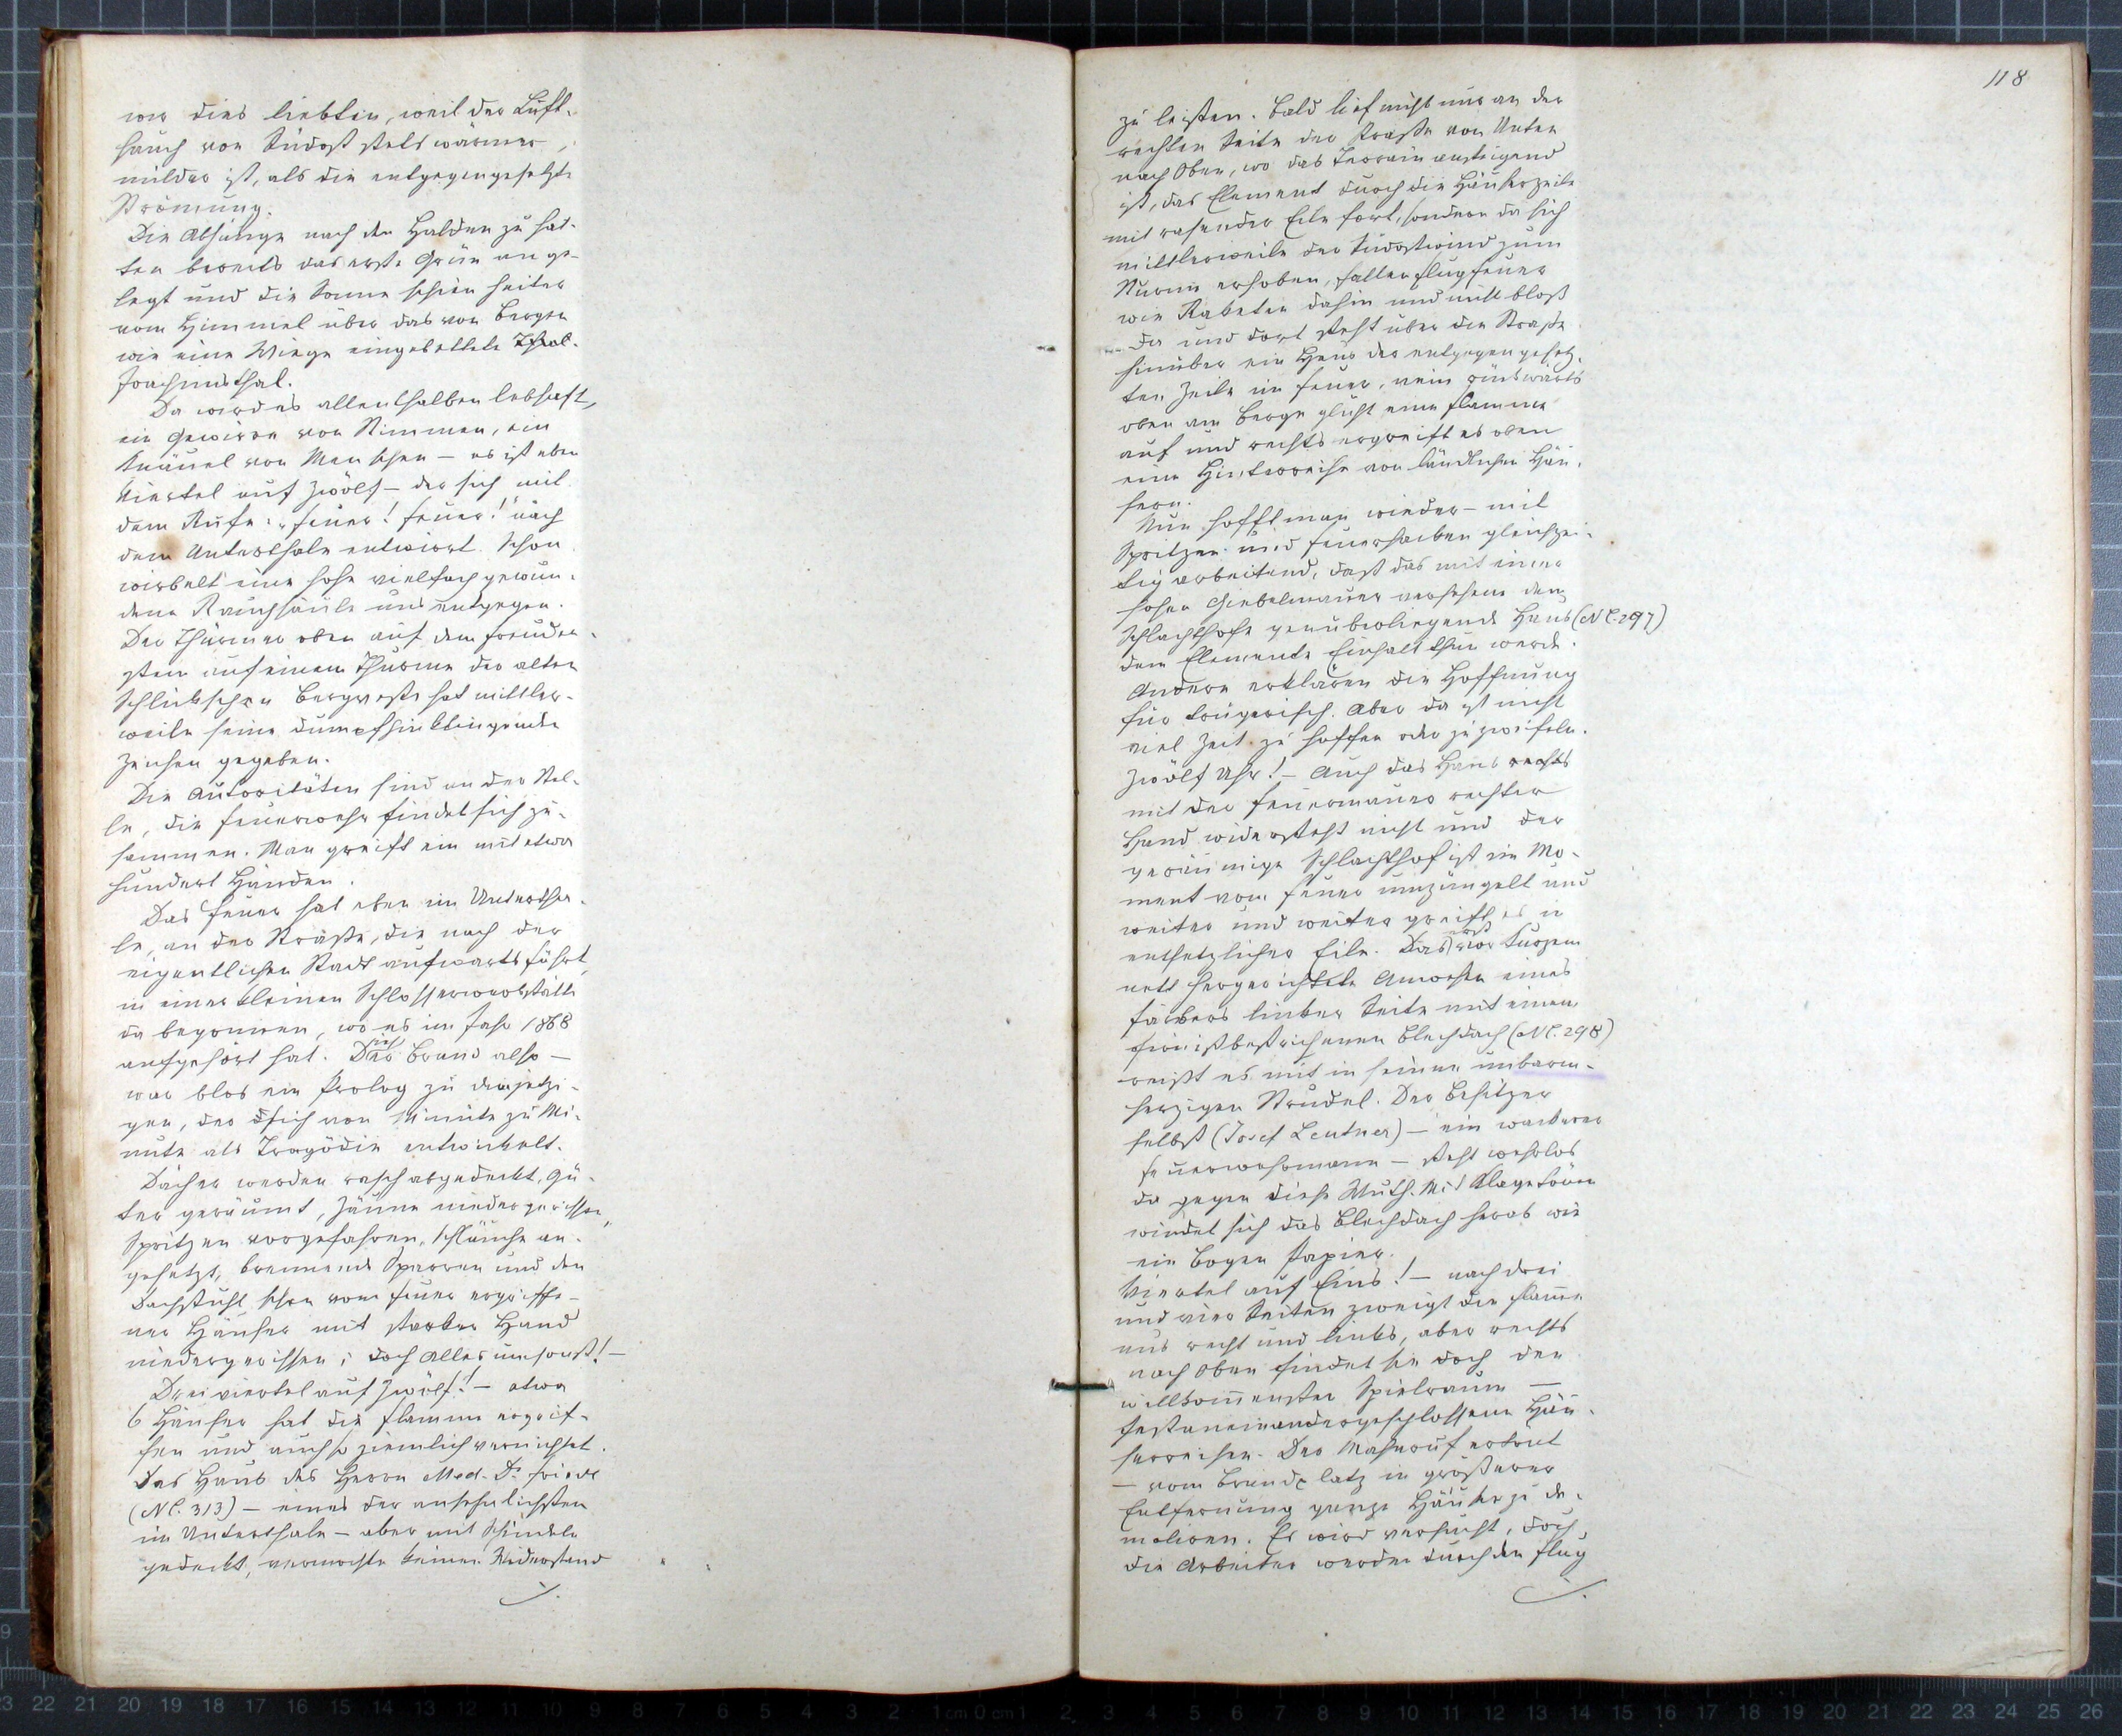 wir dies liebten, weil der Luft-
hauch von Südost stets wärmer,
milder ist, als die entgegengesetzte
Strömung.
Die Abhänge nach den Halden zu hat-
ten bereits das erste Grün ange-
legt und die Sonne schien heiter
vom Himmel über das von Bergen
wie eine Wiege eingebettete Thal-
Joachimsthal.
Da wird es allenthalben lebhaft,
ein Gewirre von Stimmen, ein
Knäuel von Menschen – es ist eben
Viertel auf zwölf – der sich mit
dem Rufe: „Feuer! Feuer!" nach
dem Unterthale entwirrt. Schon
wirbelt eine hohe vielfach gewun-
dene Rauchsäule uns entgegen.
Der Thürmer oben auf dem Freuden-
stein auf einem Thurme der alten
Schlickschen Bergveste hat mittler-
weile seine dumpfhinklingenden
Zeichen gegeben.
Die Autoritäten sind an der Stel-
le, die Feuerwehr findet sich zu-
sammen. Man greift ein mit etwa
hundert Händen.
Das Feuer hat eben im Untertha-
le, an der Straße, die nach der
eigentlichen Stadt aufwärts führt,
in einer kleinen Schlosserwerkstätte
da begonnen, wo es im Jahr 1868
aufgehört hat. Der Brand also –
war blos ein Prolog zu dem jetzi-
gen, der sich von Minute zu Mi-
nute als Tragödie entwickelt.
Dächer werden rasch abgedeckt, Gü-
ter geräumt, Zäune niedergerissen,
Spritzen vorgefahren, Schläuche an-
gesetzt, brennende Sparren und den
Dachstuhl schon vom Feuer ergriffe-
ner Häuser mit starker Hand
niedergerissen; doch Alles umsonst! –
Dreiviertel auf Zwölf! – etwa
6 Häuser hat die Flamme ergrif-
fen und auch so ziemlich vernichtet.
Das Haus des Herrn Med. Dr.
(NC. 313) – eines der ansehnlichsten
im Unterthale – aber mit Schindeln
gedeckt, vermochte keinen Widerstand
./.
118
zu leisten. Bald lief nicht nur an der
rechten Seite der Straße von Unten
nach Oben, wo das Terrain ansteigend
ist, das Element durch die Häuserzeile
mit rasender Eile fort, sondern da sich
mittlerweile der Südostwind zum
Sturme erhoben, fallen Flugfeuer
wie Raketen dahin und nicht bloß
da und dort steht über die Straße
hinüber ein Haus der entgegengesetz-
ten Zeile in Feuer, nein rückwärts
oben am Berge glüht eine Flamme
auf und rechts ergreift es oben
eine Hinterreihe von ländlichen Häu-
sern.
Nun hofft man wieder – mit
Spritzen und Feuerhacken gleichzei-
tig arbeitend, daß das mit einer
hohen Giebelmauer versehene dem
Schlachthofe genüberliegende Haus (NC. 297)
dem Elemente Einhalt thun werde.
Andere erklären die Hoffnung
für trügerisch. Aber da ist nicht
viel Zeit zu hoffen oder zu zweifeln.
Zwölf Uhr! – Auch das Haus rechts
mit der Feuermauer rechter
Hand widersteht nicht und der
geräumige Schlachthof ist im Mo-
ment vom Feuer umzüngelt und
weiter und weiter greift es in
entsetzlicher Eile. Das erst vor Kurzem
nett hergerichtete Anwesen eines
Färbers linker Seite mit einem
firnißbestrichenen Blechdach (NC. 298)
reißt es mit in seinen unbarm-
herzigen Strudel. Der Besitzer
selbst (Josef Leutner) – ein wackerer
Feuerwehrmann – steht wehrlos
da gegen diese Wuth. Mit Klagetönen
windet sich das Blechdach herab wie
ein Bogen Papier.
Viertel auf Eins! – nach drei
und vier Seiten zweigt die Flamme
aus recht und links, aber rechts
nach Oben findet sie doch den
willkommensten Spielraum –
festaneinandergeschlossene Häu-
serreihen. Der Mahnruf ertönt
– vom Brandplatz in größerer
Entfernung ganze Häuser zu de-
moliren. Es wird versucht, doch
die Arbeiter werden durch den Flug
./.